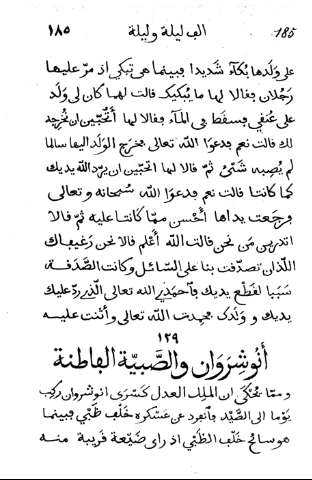 ١٨٥ الف ليلة وليلة 185
على ولدها بكآء شديدا فبينما هي تبكي اذ مرّ عليها
رجلان فقالا لها ما يبكيك قالت لهما كان لى ولد
على عنقي فسقط فى المآء فقالا لها أتحبّين ان نخرجه
لك قالت نعم فدعوا الله تعالى فخرج الولد اليها سالما
لم يصبه شئ ثمّ قالا لها اتحبّين ان يردّ الله يديك
كما كانتا قالت نعم فدعوا الله سبحانه وتعالى
فرجعت يداها أحسن ممّا كانتا عليه ثم قالا
اتدرين من نحن قالت الله أعلم قالا نحن رغيفاك
اللذان تصدّقت بنا على السائل وكانت الصّدقة
سببا لقطع يديك فاحمدى الله تعالى الّذى ردّ عليك
يديك و ولدك فحمدت الله تعالى وأثنت عليه
١٢٩
أنوشروان والصبيّة الفاطنة
وممّا يحكى ان الملك العدل كسرى انوشروان ركب
يوما الى الصّيد فانفرد عن عسكره خلف ظبي فبينما
هو سائح خلف الظبي اذ راى ضيعة قريبة منه